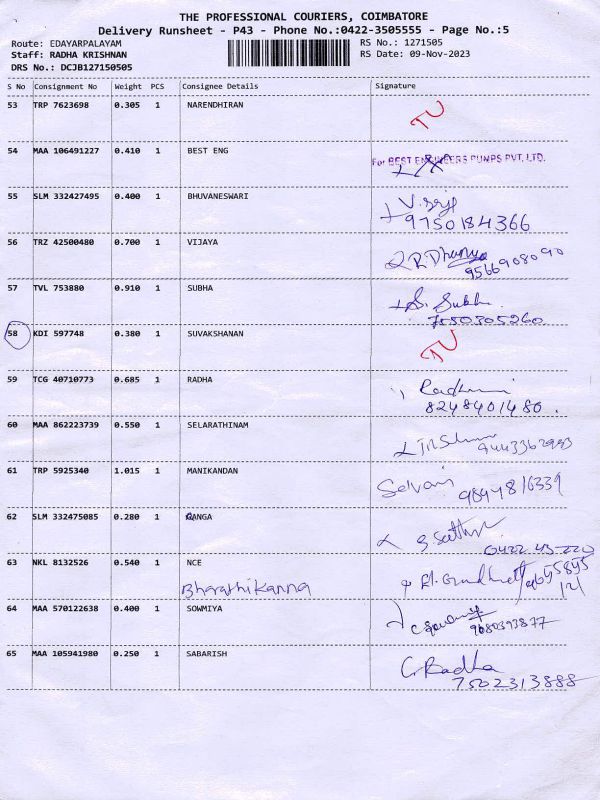 THE PROFESSIONAL COURIERS, COIMBATORE
Delivery Runsheet - P43 - Phone No.:0422-3505555 - Page No.:5
Route: EDAYARPALAYAM
RS No.: 1271505
Staff: RADHA KRISHNAN
RS Date: 09-Nov-2023
DRS No.: DCJB127150505
S No Consignment No Weight PCS Consignee Details Signature
53 TRP 7623698 0.305 1 NARENDHIRAN TU
54 MAA 106491227 0.410 1 BEST ENG For BEST ENGINEERS PUMPS PVT. LTD.
55 SLM 332427495 0.400 1 BHUVANESWARI
9750184366
56 TRZ 42500480 0.700 1 VIJAYA R.Dhanya
9566908090
57 TVL 753880 0.910 1 SUBHA S. Subha
7550305260
58 KDI 597748 0.380 1 SUVAKSHANAN TU
59 TCG 40710773 0.685 1 RADHA
8248401480.
60 MAA 862223739 0.550 1 SELARATHINAM
61 TRP 5925340 1.015 1 MANIKANDAN Selvari
62 SLM 332475085 0.280 1 GANGA
0422 43-220
63 NKL 8132526 0.540 1 NCE
Bharathi Kanna
64 MAA 570122638 0.400 1 SOWMIYA
9080393877
65 MAA 105941980 0.250 1 SABARISH C. Radha
7502313888